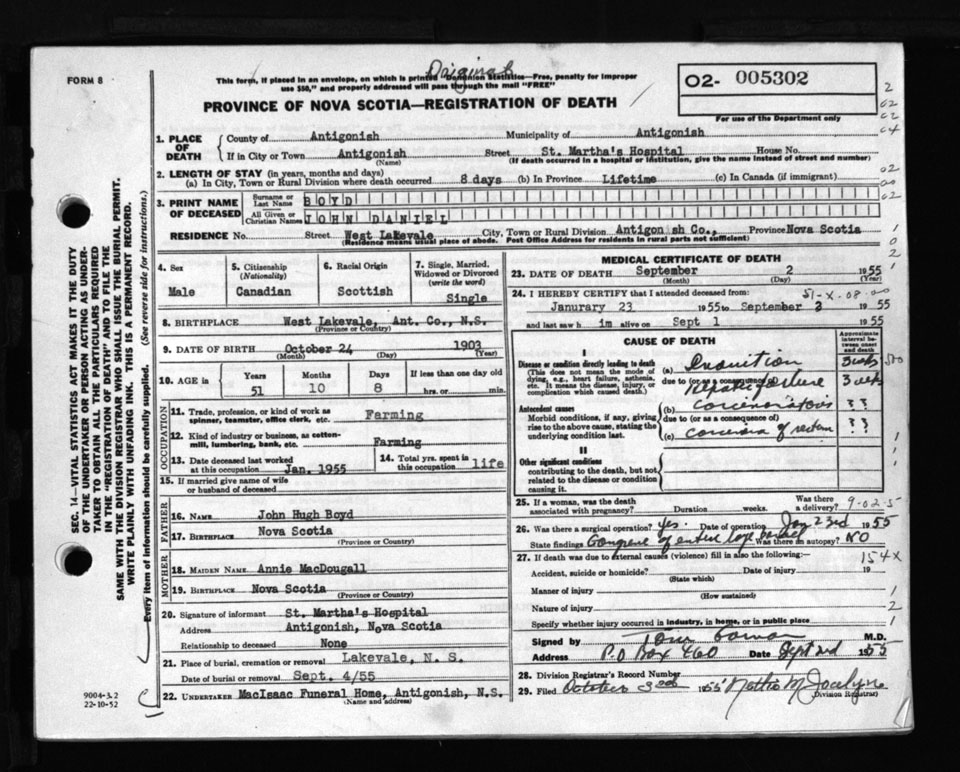 FORM 8
Original
This form, if placed in an envelope, on which is printed "Dominion Statistics—Free, penalty for improper
use $50," and properly addressed will pass through the mail "FREE"
PROVINCE OF NOVA SCOTIA—REGISTRATION OF DEATH
02- 005302
For use of the Department only
2
02
02
04
1. PLACE OF DEATH
County of Antigonish Municipality of Antigonish
If in City or Town Antigonish Street St. Martha's Hospital House No.
(Name) (If death occurred in a hospital or institution, give the name instead of street and number)
2. LENGTH OF STAY (in years, months and days)
(a) In City, Town or Rural Division where death occurred 8 days (b) In Province Lifetime (c) In Canada (if immigrant)
02
00
02
3. PRINT NAME OF DECEASED
Surname or Last Name BOYD
All Given or Christian Names JOHN DANIEL
RESIDENCE No. Street West Lakevale City, Town or Rural Division Antigonish Co., Province Nova Scotia
(Residence means usual place of abode. Post Office Address for residents in rural parts not sufficient)
4. Sex
Male
5. Citizenship
(Nationality)
Canadian
6. Racial Origin
Scottish
7. Single, Married, Widowed or Divorced
(write the word)
Single
8. BIRTHPLACE West Lakevale, Ant. Co., N.S.
(Province or Country)
9. DATE OF BIRTH October 24 1903
(Month) (Day) (Year)
10. AGE in Years Months Days If less than one day old
51 10 8 hrs. or min.
OCCUPATION
11. Trade, profession, or kind of work as
spinner, teamster, office clerk, etc. Farming
12. Kind of industry or business, as cotton-
mill, lumbering, bank, etc. Farming
13. Date deceased last worked
at this occupation Jan. 1955
14. Total yrs. spent in
this occupation life
15. If married give name of wife
or husband of deceased
FATHER
16. NAME John Hugh Boyd
17. BIRTHPLACE Nova Scotia
(Province or Country)
MOTHER
18. MAIDEN NAME Annie MacDougall
19. BIRTHPLACE Nova Scotia
(Province or Country)
20. Signature of informant St. Martha's Hospital
Address Antigonish, Nova Scotia
Relationship to deceased None
21. Place of burial, cremation or removal Lakevale, N. S.
Date of burial or removal Sept. 4/55
22. UNDERTAKER MacIsaac Funeral Home, Antigonish, N.S.
(Name and address)
MEDICAL CERTIFICATE OF DEATH
23. DATE OF DEATH September 2 1955
(Month) (Day)
24. I HEREBY CERTIFY that I attended deceased from: 51-X-08
Janurary 23 1955 to September 3 1955
and last saw h im alive on Sept 1 1955
CAUSE OF DEATH
Approximate interval between onset and death
I
Disease or condition directly leading to death
(This does not mean the mode of
dying, e.g., heart failure, asthenia,
etc. It means the disease, injury, or
complication which caused death.)
(a) Inanition 3 wks
due to (or as a consequence of)
Hepatic failure 3 wks
Antecedent causes
Morbid conditions, if any, giving
rise to the above cause, stating the
underlying condition last.
(b) ??
due to (or as a consequence of)
(c) of rectum ??
II
Other significant conditions
contributing to the death, but not
related to the disease or condition
causing it.
25. If a woman, was the death
associated with pregnancy? Duration weeks. Was there a delivery? 9-02-5
26. Was there a surgical operation? Yes. Date of operation Jan 23rd 1955
State findings of entire large Was there an autopsy? NO
27. If death was due to external causes (violence) fill in also the following:— 154X
Accident, suicide or homicide? Date of injury 19
(State which)
Manner of injury
(How sustained)
Nature of injury
Specify whether injury occurred in industry, in home, or in public place
1
2
1
Signed by M.D.
Address P.O Box 460 Date Sept 2nd 1955
28. Division Registrar's Record Number
29. Filed October 3rd 1955
(Division Registrar)
SEC. 14—VITAL STATISTICS ACT MAKES IT THE DUTY
OF THE UNDERTAKER OR PERSON ACTING AS UNDER-
TAKER TO OBTAIN ALL THE PARTICULARS REQUIRED
IN THE "REGISTRATION OF DEATH" AND TO FILE THE
SAME WITH THE DIVISION REGISTRAR WHO SHALL ISSUE THE BURIAL PERMIT.
WRITE PLAINLY WITH UNFADING INK. THIS IS A PERMANENT RECORD.
Every item of information should be carefully supplied. (See reverse side for instructions.)
9004-3.2
22-10-52